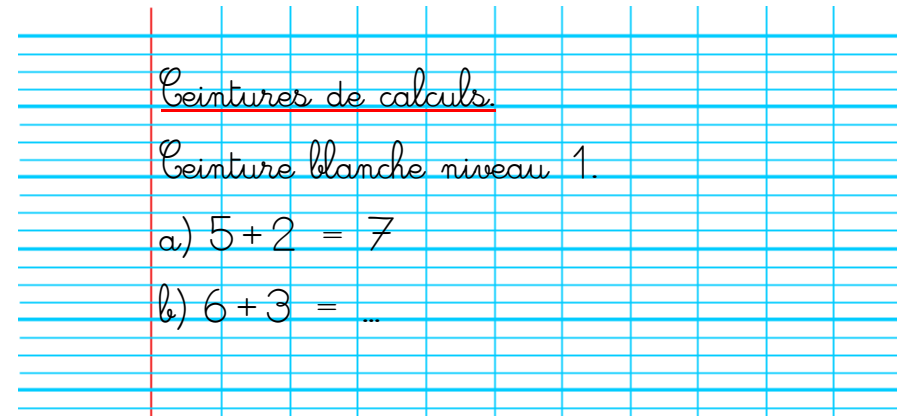 Ceintures de calculs.
Ceinture blanche niveau 1.
a) 5+2 = 7
b) 6+3 = ...